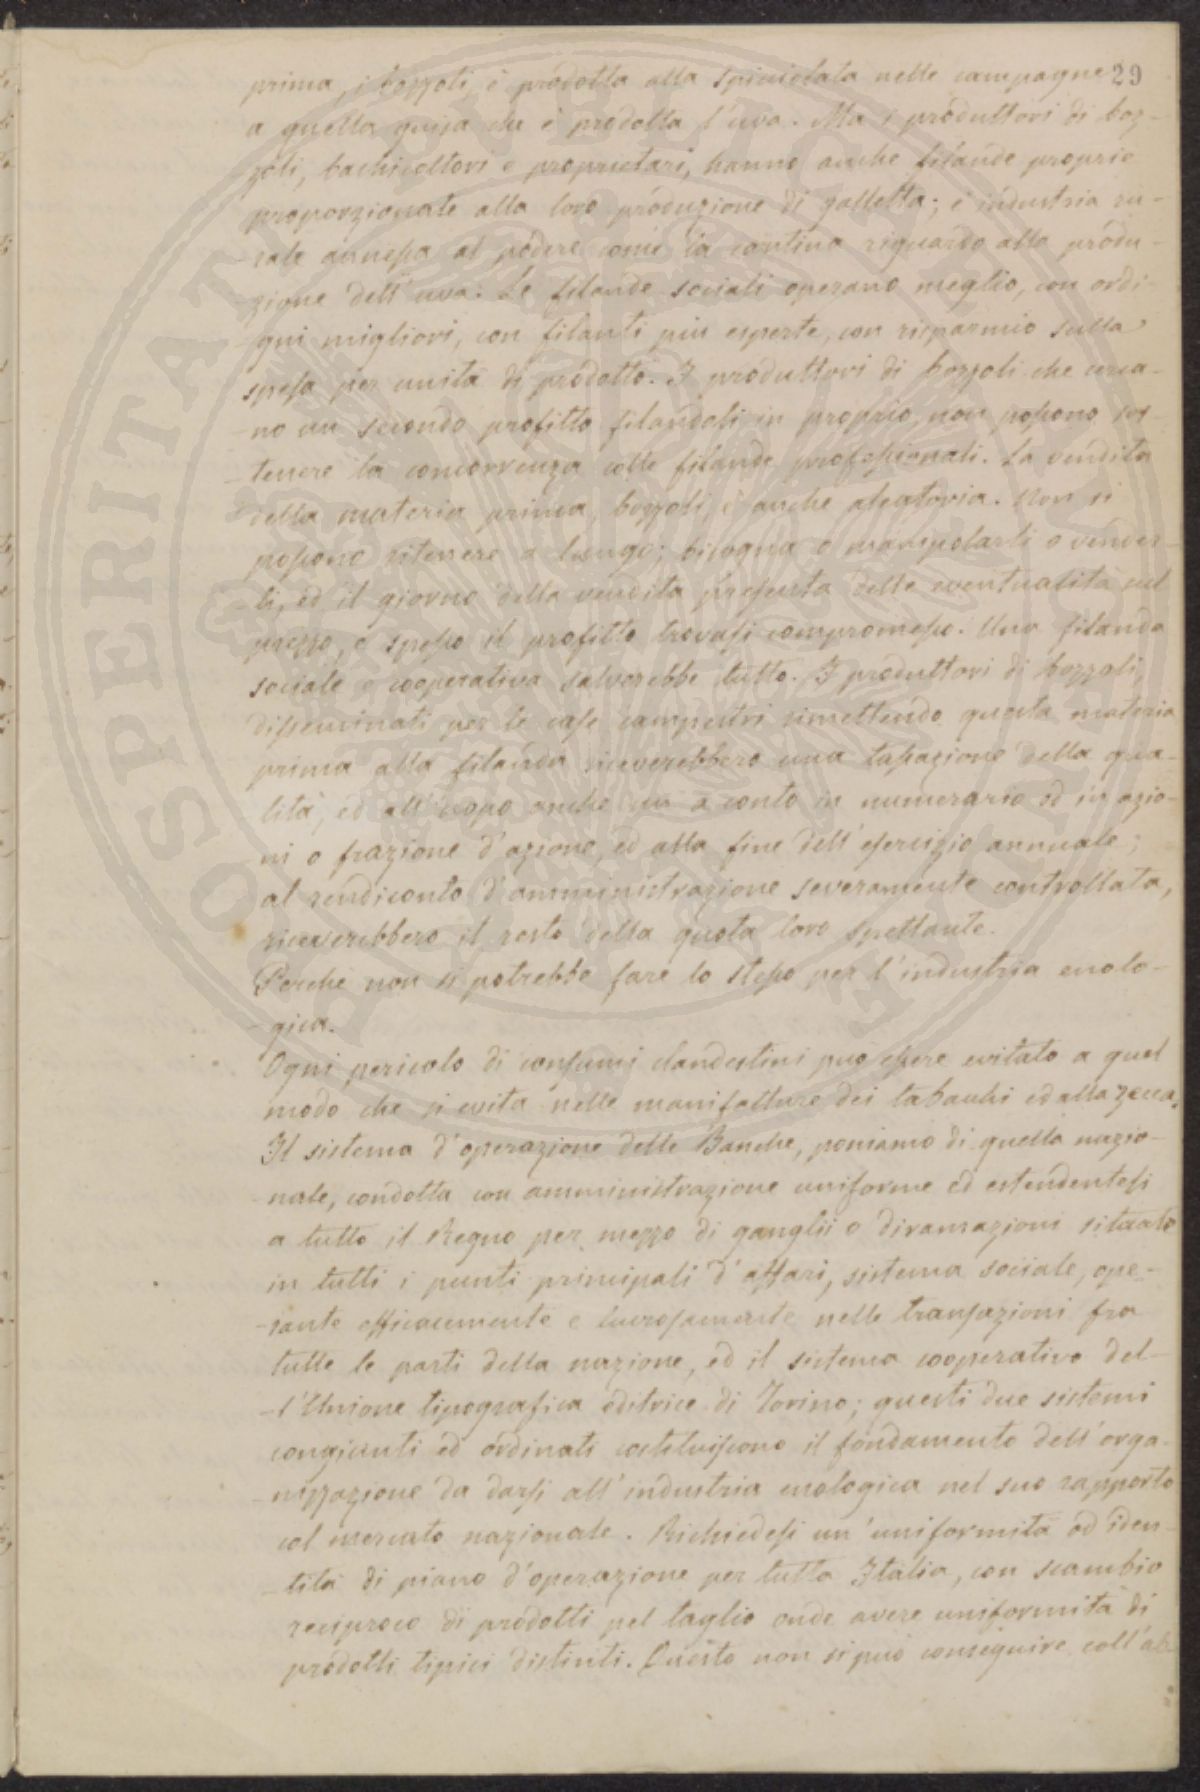 29
prima, i bozzoli, è prodotta alla spicciolata nelle campagne
a quella guisa che è prodotta l'uva. Ma i produttori di boz-
zoli, bachicoltori e proprietari, hanno anche filande proprie
proporzionate alla loro produzione di galletta; è industria ru-
-rale annessa al podere come la cantina riguardo alla produ-
-zione dell'uva. Le filande sociali operano meglio, con ordi-
-gni migliori, con filanti più esperte, con risparmio sulla
spesa per unità di prodotto. I produttori di bozzoli che cerca-
-no un secondo profitto filandoli in proprio, non possono sos-
-tenere la concorrenza colle filande professionali. La vendita
della materia prima, bozzoli, è anche aleatoria. Non si
possono ritenere a lungo; bisogna o manipolarli o vender-
-li, ed il giorno della vendita presenta delle eventualità nel
prezzo, e spesso il profitto trovasi compromesso. Una filanda
sociale e cooperativa salverebbe tutto. I produttori di bozzoli,
disseminati per le case campestri rimettendo questa materia
prima alla filanda riceverebbero una tassazione della qua-
lità, ed all'uopo anche un a conto in numerario od in azio-
-ni o frazione d'azione, ed alla fine dell'esercizio annuale;
al rendiconto d'amministrazione severamente controllata,
riceverebbero il resto della quota loro spettante.
Perchè non si potrebbe fare lo stesso per l'industria enolo-
-gica.
Ogni pericolo di consumi clandestini può essere evitato a quel
modo che si evita nelle manifatture dei tabacchi ed alla zecca.
Il sistema d'operazione delle Banche, poniamo di quella nazio-
-nale, condotta con amministrazione uniforme ed estendentesi
a tutto il Regno per mezzo di ganglii o diramazioni situate
in tutti i punti principali d'affari, sistema sociale, ope-
-rante efficacemente e lucrosamente nelle transazioni fra
tutte le parti della nazione, ed il sistema cooperativo del-
-l'Unione tipografica editrice di Torino; questi due sistemi
congiunti ed ordinati costituiscono il fondamento dell'orga-
nizzazione da darsi all'industria enologica nel suo rapporto
col mercato nazionale. Richiedesi un'uniformità od iden-
-tità di piano d'operazione per tutta Italia, con scambio
reciproco di prodotti pel taglio onde avere uniformità di
prodotti tipici distinti. Questo non si può conseguire coll'
PROSPERITATI PUBLICAE